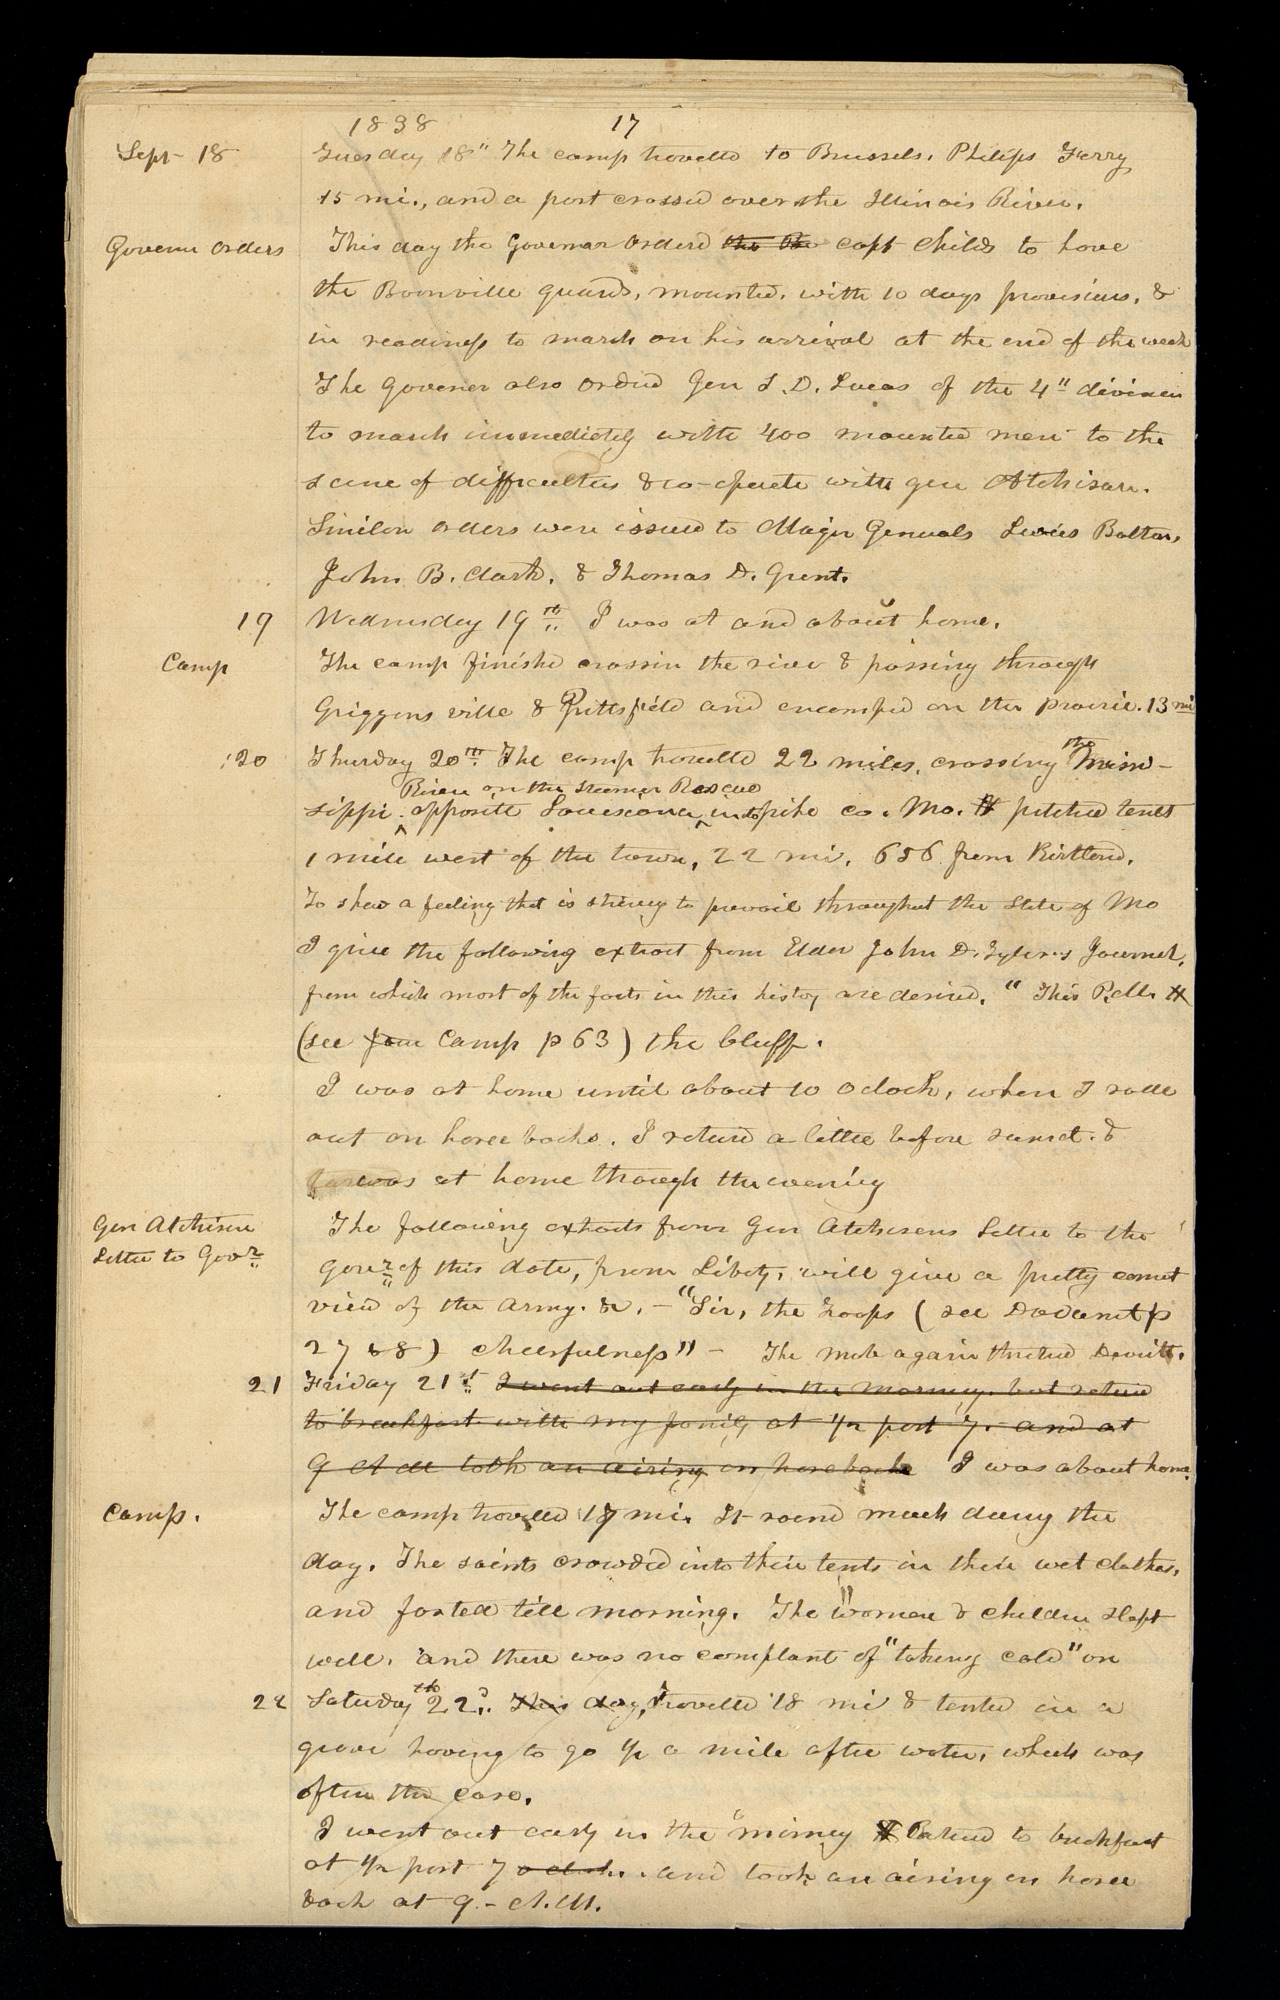 1838 17
Sept- 18 Tuesday 18" The camp travelld to Brussels. Philips Ferry
15 mi., and a part crossed over the Illinois River.
Govenr orders This day the Governor orderd the Bo capt Childs to have
the Boonville guards, mounted, with 10 days provisions, &
in readiness to march on his arrival at the end of the week
The Govenor also orderd Gen S. D. Lucas of the 4" division
to march immediately with 400 mounted men to the
scene of difficulties & co-operate with gen Atchison.
Similar orders were issued to Major Generals Lewis Bolton,
John B. Clark, & Thomas D. Grant.
19 Wednesday 19th I was at and about home.
Camp The camp finishd crossin the river & passing through
Griggons ville & Pittsfield and encamped on the prairie. 13 mi
20 Thursday 20th The camp travelld 22 miles, crossing the Missi-
River on the steamer Rescue
sippi opposite Louisiana, into pike co. Mo. pitched tents
1 mile west of the town, 22 mi. 656 from Kirtland.
To shew a feeling that is striving to prevail throughout the State of Mo
I give the following extract from Elder John D. Tyler's Journal.
from which most of the facts in this histoy are derived. "This P.M.
(see from Camp p 63) the bluff.
I was at home until about 10 oclock, when I rode
out on horse backs. I returd a little before sunset. &
was at home through the evening
Gen Atchison The following extracts from Gen Atchisons Letter to the
Letter to Govr. Govr. of this date, from Libety, will give a pretty correct
view of the army. &c. - "Sir, the troops (see Documet p
27 & 8) cheerfulness" - The mob again thretned Dewitt.
21 Friday 21st I went out early in the morning. but returd
to breakfast with my family at 1/2 past 7. and at
9 A M took an airing on horse back I was about home.
Camp. The camp travelled 17 mi. It raind much durng the
day. The saints crowded into their tents in their wet clothes,
and fasted till morning. The women & children slept
well, and there was no complant of "taking cold" on
22 Saturday the 22d. This day, travelld 18 mi & tented in a
grove having to go 1/2 a mile after water, which was
often the case.
I went out early in the morning & returnd to breakfast
at 1/2 past 7 o clock. and took an airing on horse
back at 9 - A.M.